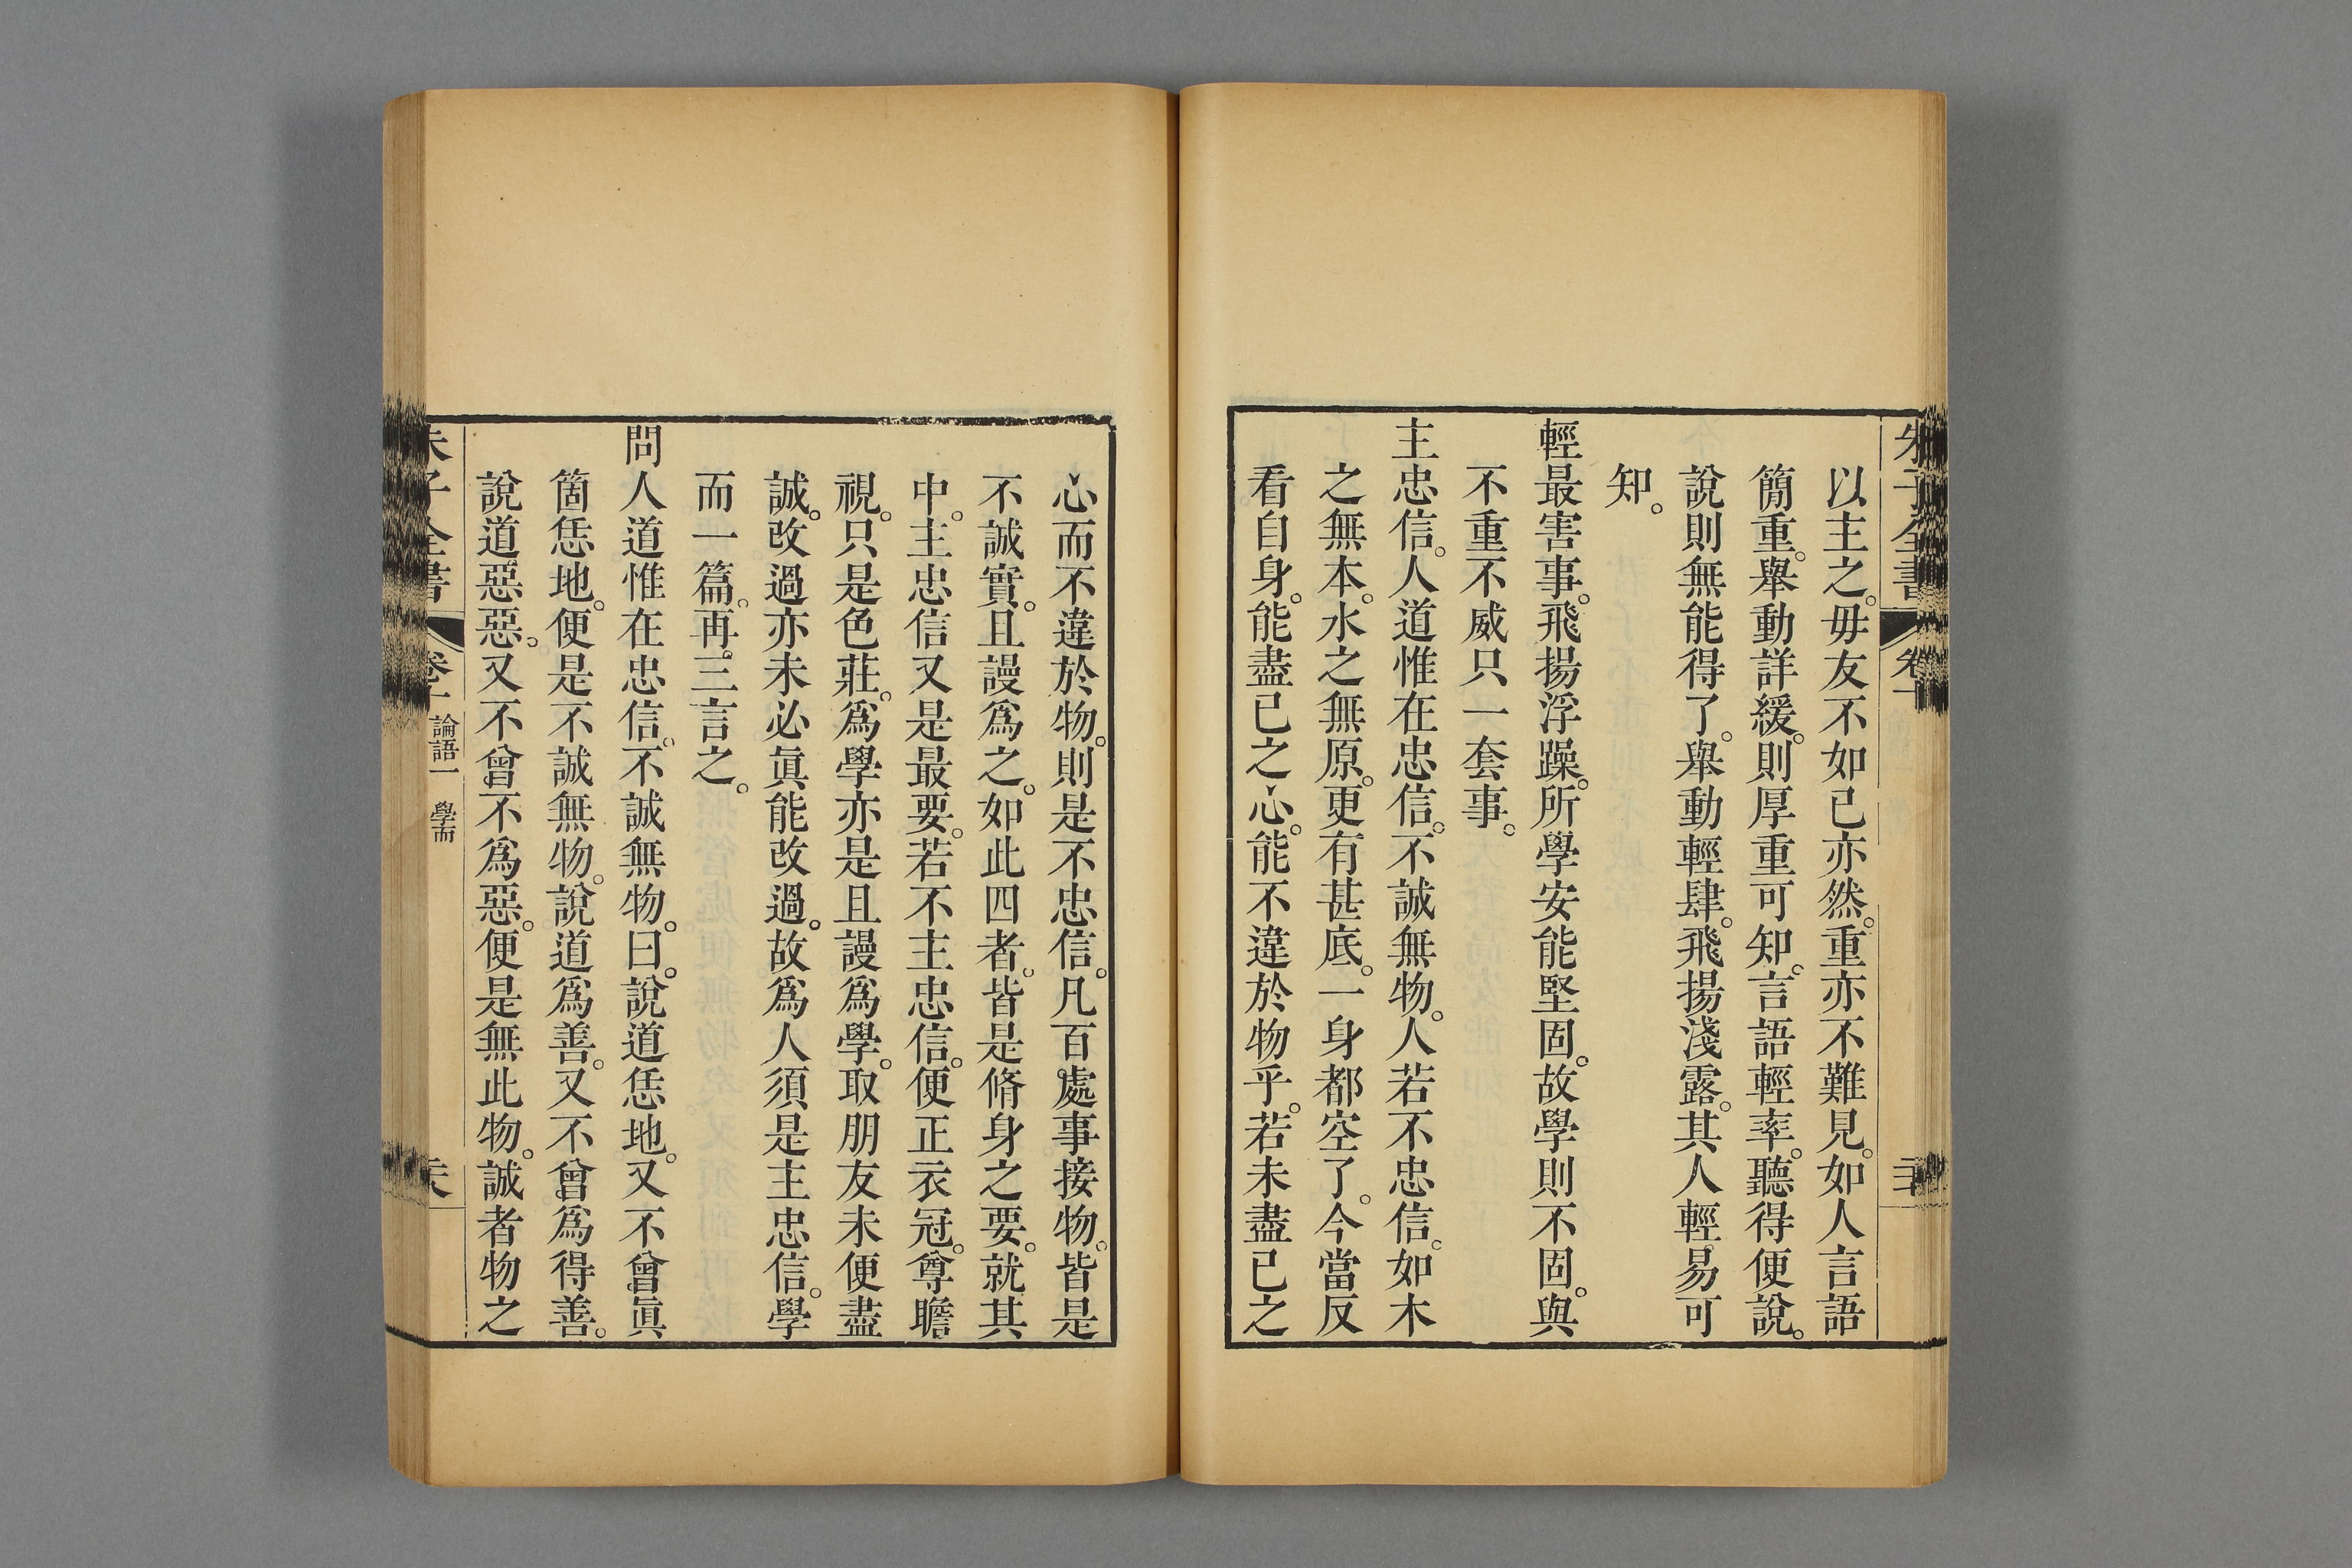 朱子全書 卷十
以主之。毋友不如己亦然。重亦不難見。如人言語
簡重。舉動詳緩。則厚重可知。言語輕率。聽得便說。
說則無能得了。舉動輕肆。飛揚淺露。其人輕易可
知。
輕最害事。飛揚浮躁。所學安能堅固。故學則不固。與
不重不威只一套事。
主忠信。人道惟在忠信。不誠無物。人若不忠信。如木
之無本。水之無原。更有甚底。一身都空了。今當反
看自身。能盡己之心。能不違於物乎。若未盡己之
心而不違於物。則是不忠信。凡百處事接物。皆是
不誠實。且謾爲之。如此四者。皆是脩身之要。就其
中。主忠信又是最要。若不主忠信。便正衣冠。尊瞻
視。只是色莊。爲學亦是且謾爲學。取朋友未便盡
誠。改過亦未必眞能改過。故爲人須是主忠信。學
而一篇。再三言之。
問人道惟在忠信。不誠無物。曰。說道恁地。又不曾眞
箇恁地。便是不誠無物。說道爲善。又不曾爲得善。
說道惡惡。又不曾不爲惡。便是無此物。誠者物之
朱子全書 卷十 論語一 學而